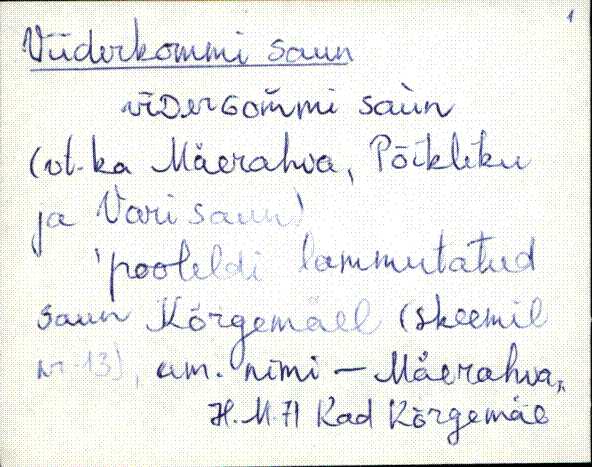 1
Viiderkommi saun
vīDerGom̆mi saùn
(vt. ka Mäerahva, Põikliku
ja Vari saun)
'pooleldi lammutatud
saun Kõrgemäel (skeemil
nr 13), am. nimi — Mäerahva,
H. M. A Kad Kõrgemäe